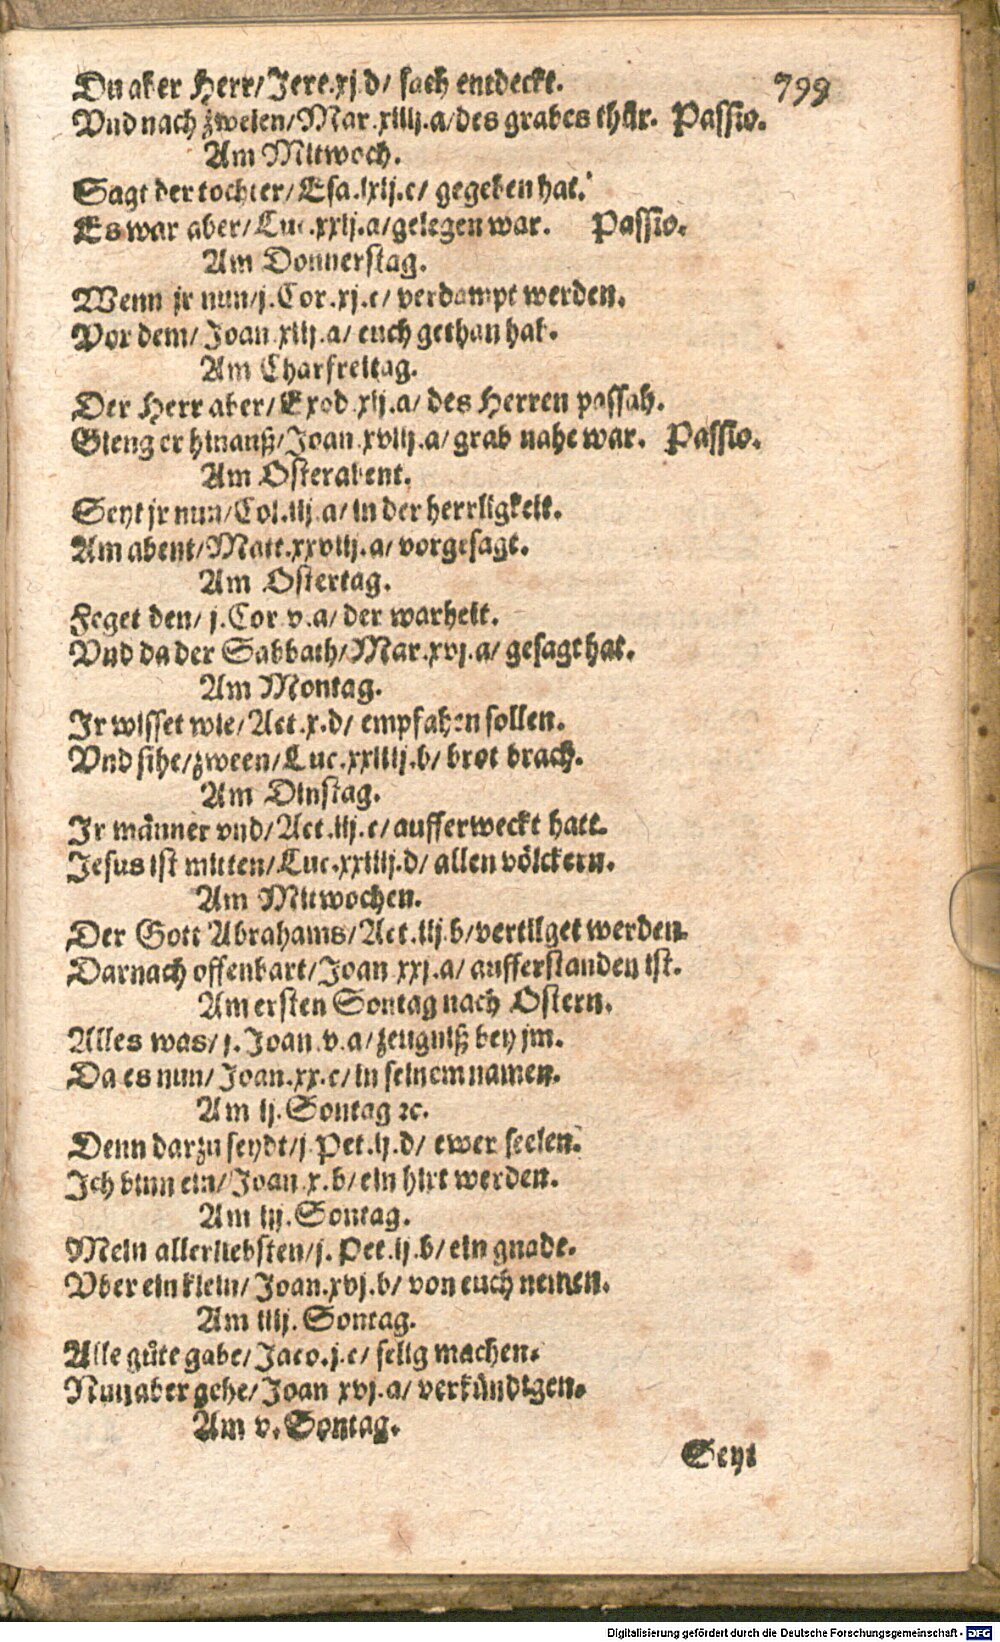 Du aber Herr/Jere.xj.d/ sach entdeckt.
799
Vnd nach zweien/Mar.xiiij.a/des grabes thür. Passio.
Am Mitwoch.
Sagt der tochter/Esa.lxij.c/ gegeben hat.
Es war aber/Luc.xxij.a/gelegen war. Passio.
Am Donnerstag.
Wenn jr nun/j.Cor.xj.c/ verdampt werden.
Vor dem/ Joan.xiij.a/ euch gethan hab.
Am Charfreitag.
Der Herr aber/Exod.xij.a/ des Herren passah.
Gieng er hinauß/Joan.xviij.a/ grab nahe war. Passio.
Am Osterabent.
Seyt jr nun/Col.iij.a/in der herrligkeit.
Am abent/Matt.xxviij.a/ vorgesagt.
Am Ostertag.
Feget den/ j.Cor.v.a/ der warheit.
Vnd da der Sabbath/Mar.xvj.a/ gesagt hat.
Am Montag.
Ir wisset wie/Act.x.d/ empfahen sollen.
Vnd sihe/zween/Luc.xxiiij.b/ brot brach.
Am Dinstag.
Ir männer vnd/Act.iij.c/aufferweckt hatt.
Jesus ist mitten/Luc.xxiiij.d/ allen völckern.
Am Mitwochen.
Der Gott Abrahams/Act.iij.b/vertilget werden.
Darnach offenbart/Joan.xxj.a/ aufferstanden ist.
Am ersten Sontag nach Ostern.
Alles was/ j.Joan.v.a/zeugniß bey jm.
Da es nun/ Joan.xx.c/in seinem namen.
Am ij. Sontag ꝛc.
Denn darzu seydt/j.Pet.ij.d/ ewer seelen.
Ich binn ein/Joan.x.b/ein hirt werden.
Am iij. Sontag.
Mein allerliebsten/j.Pet.ij.b/ein gnade.
Vber ein klein/Joan.xvj.b/ von euch nemen.
Am iiij. Sontag.
Alle gůte gabe/Jaco.j.c/ selig machen.
Nun aber gehe/Joan.xvj.a/ verkündigen.
Am v. Sontag.
Seyt
Digitalisierung gefördert durch die Deutsche Forschungsgemeinschaft - DFG